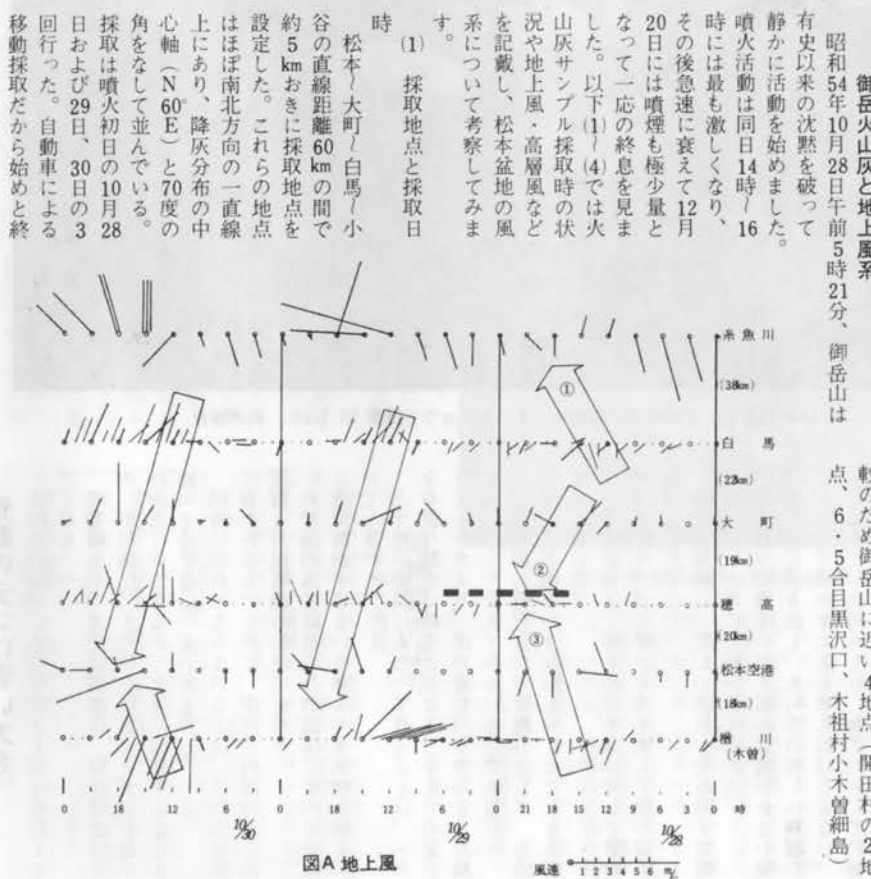 御岳火山灰と地上風系
昭和54年10月28日午前5時21分、御岳山は
有史以来の沈黙を破って
静かに活動を始めました。
噴火活動は同日14時～16
時には最も激しくなり、
その後急速に衰えて12月
20日には噴煙も極少量と
なって一応の終息を見ま
した。以下(1)～(4)では火
山灰サンプル採取時の状
況や地上風・高層風など
を記載し、松本盆地の風
系について考察してみま
す。
(1) 採取地点と採取日
時
松本～大町～白馬～小
谷の直線距離60kmの間で
約5kmおきに採取地点を
設定した。これらの地点
はほぼ南北方向の一直線
上にあり、降灰分布の中
心軸（N60°E）と70度の
角をなして並んでいる。
採取は噴火初日の10月28
日および29日、30日の3
回行った。自動車による
移動採取だから始めと終
較のため御岳山に近い4地点（開田村の2地
点、6・5合目黒沢口 木祖村小木曽細島）
糸魚川
(38km)
①
白馬
(22km)
大町
(19km)
②
穂高
(20km)
③
松本空港
(18km)
楢川
(木曽)
0 18 12 6 0 18 12 6 0 21 18 15 12 9 6 3 0 時
10/30 10/29 10/28
図A 地上風
風速 1 2 3 4 5 6 m/s